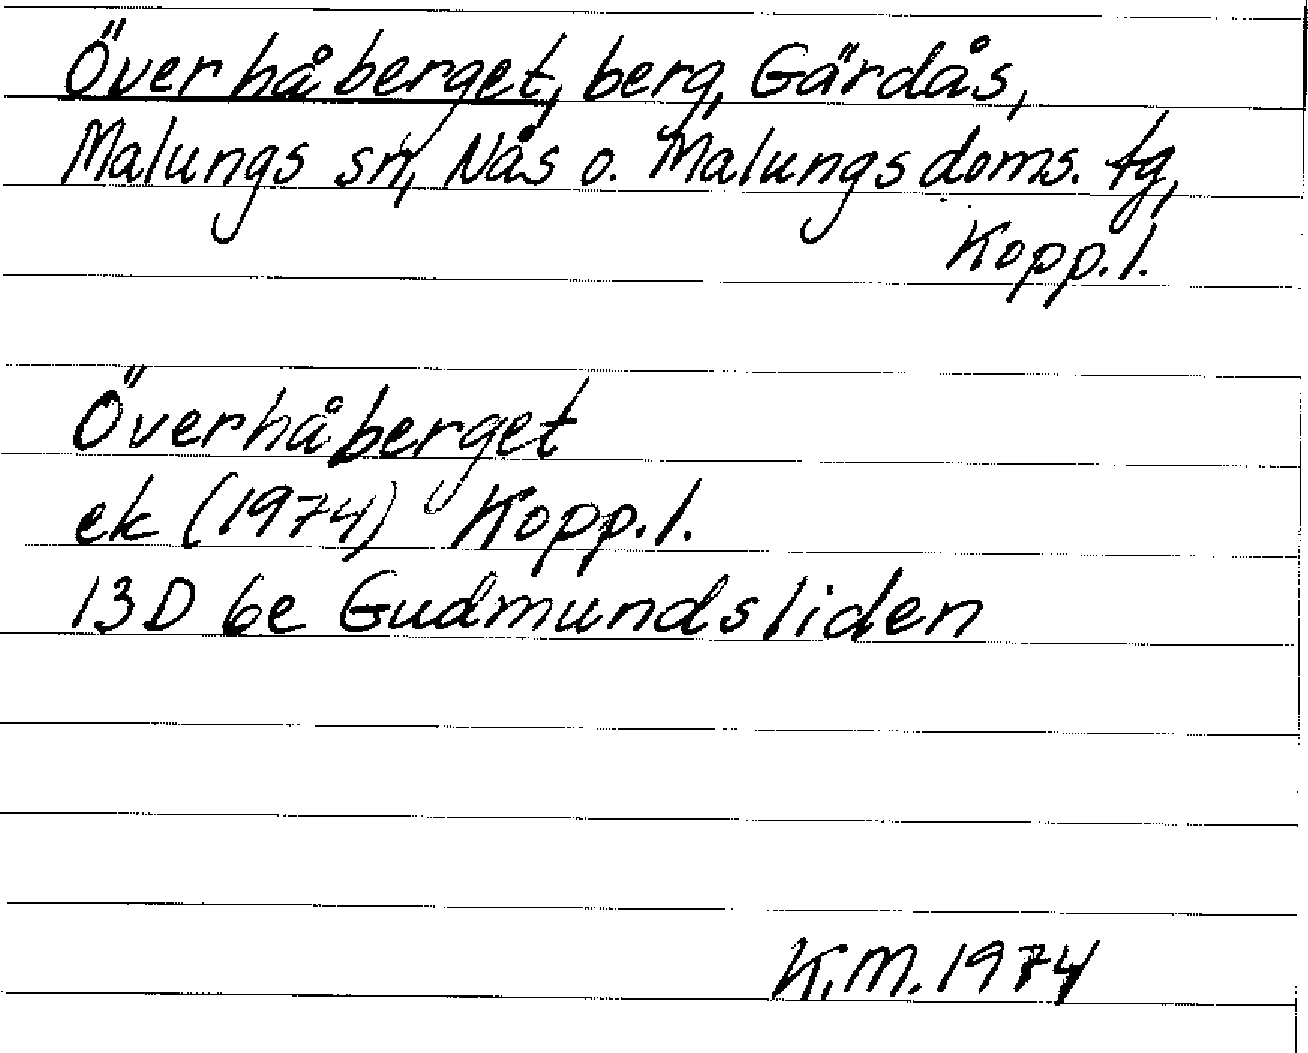 Överhåberget, berg, Gärdås,
Malungs sn, Nås o. Malungs doms. tg,
Kopp. l.
Överhåberget
ek (1974) Kopp. l.
13D 6e Gudmundsliden
K.M. 1974